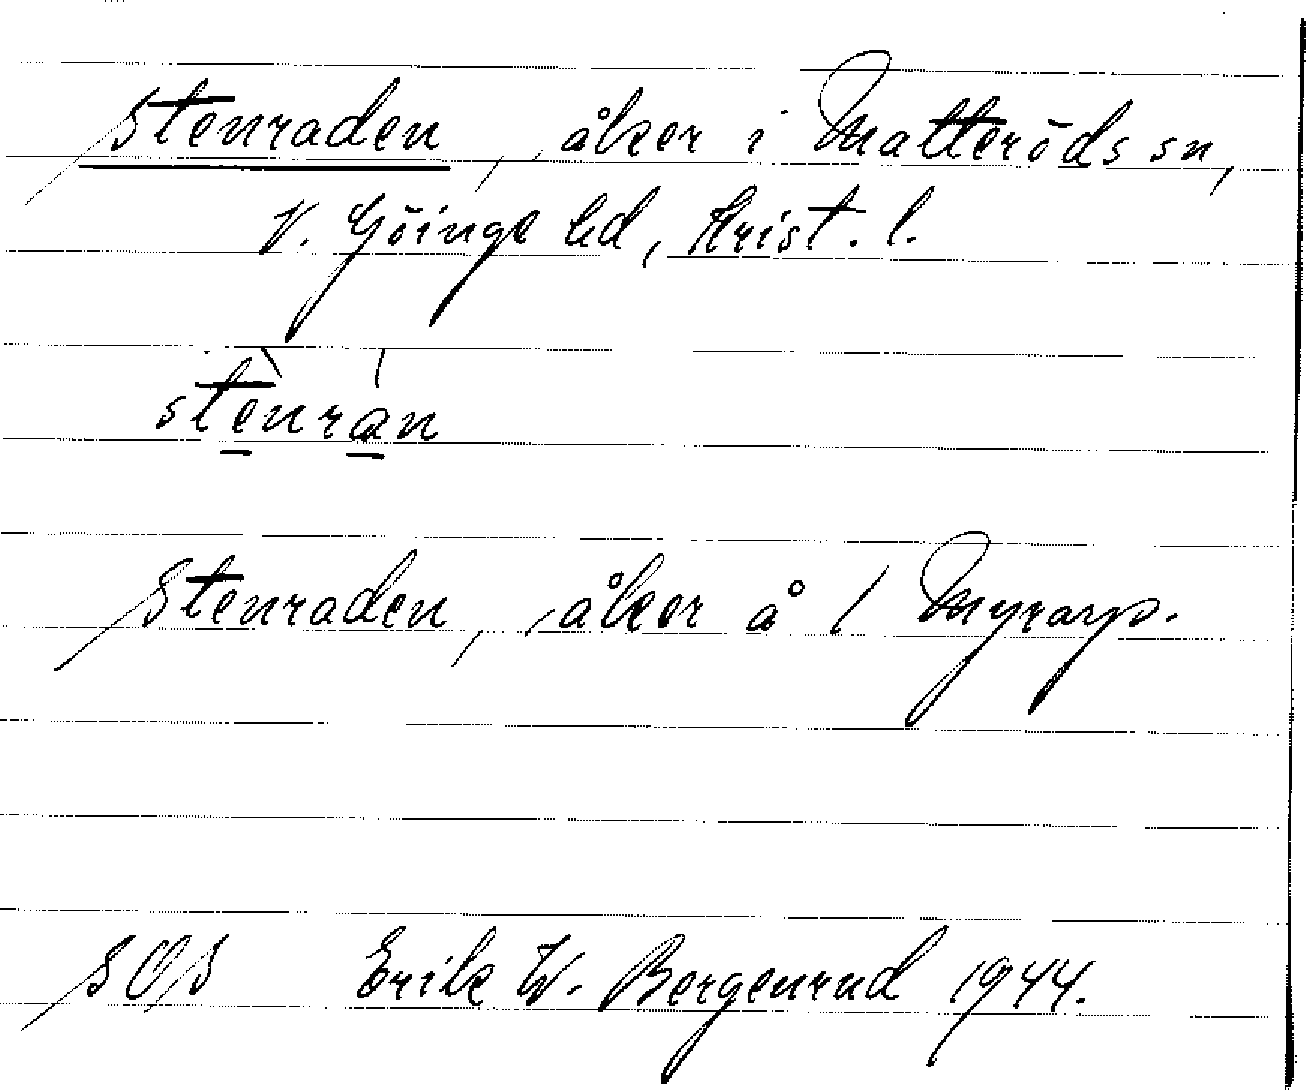 Stenraden, åker i Matteröds sn,
V. Göinge hd, Krist. l.
stènrán
Stenraden, åker å 1 Myrarp.
SOS Erik W. Bergenrud 1944.